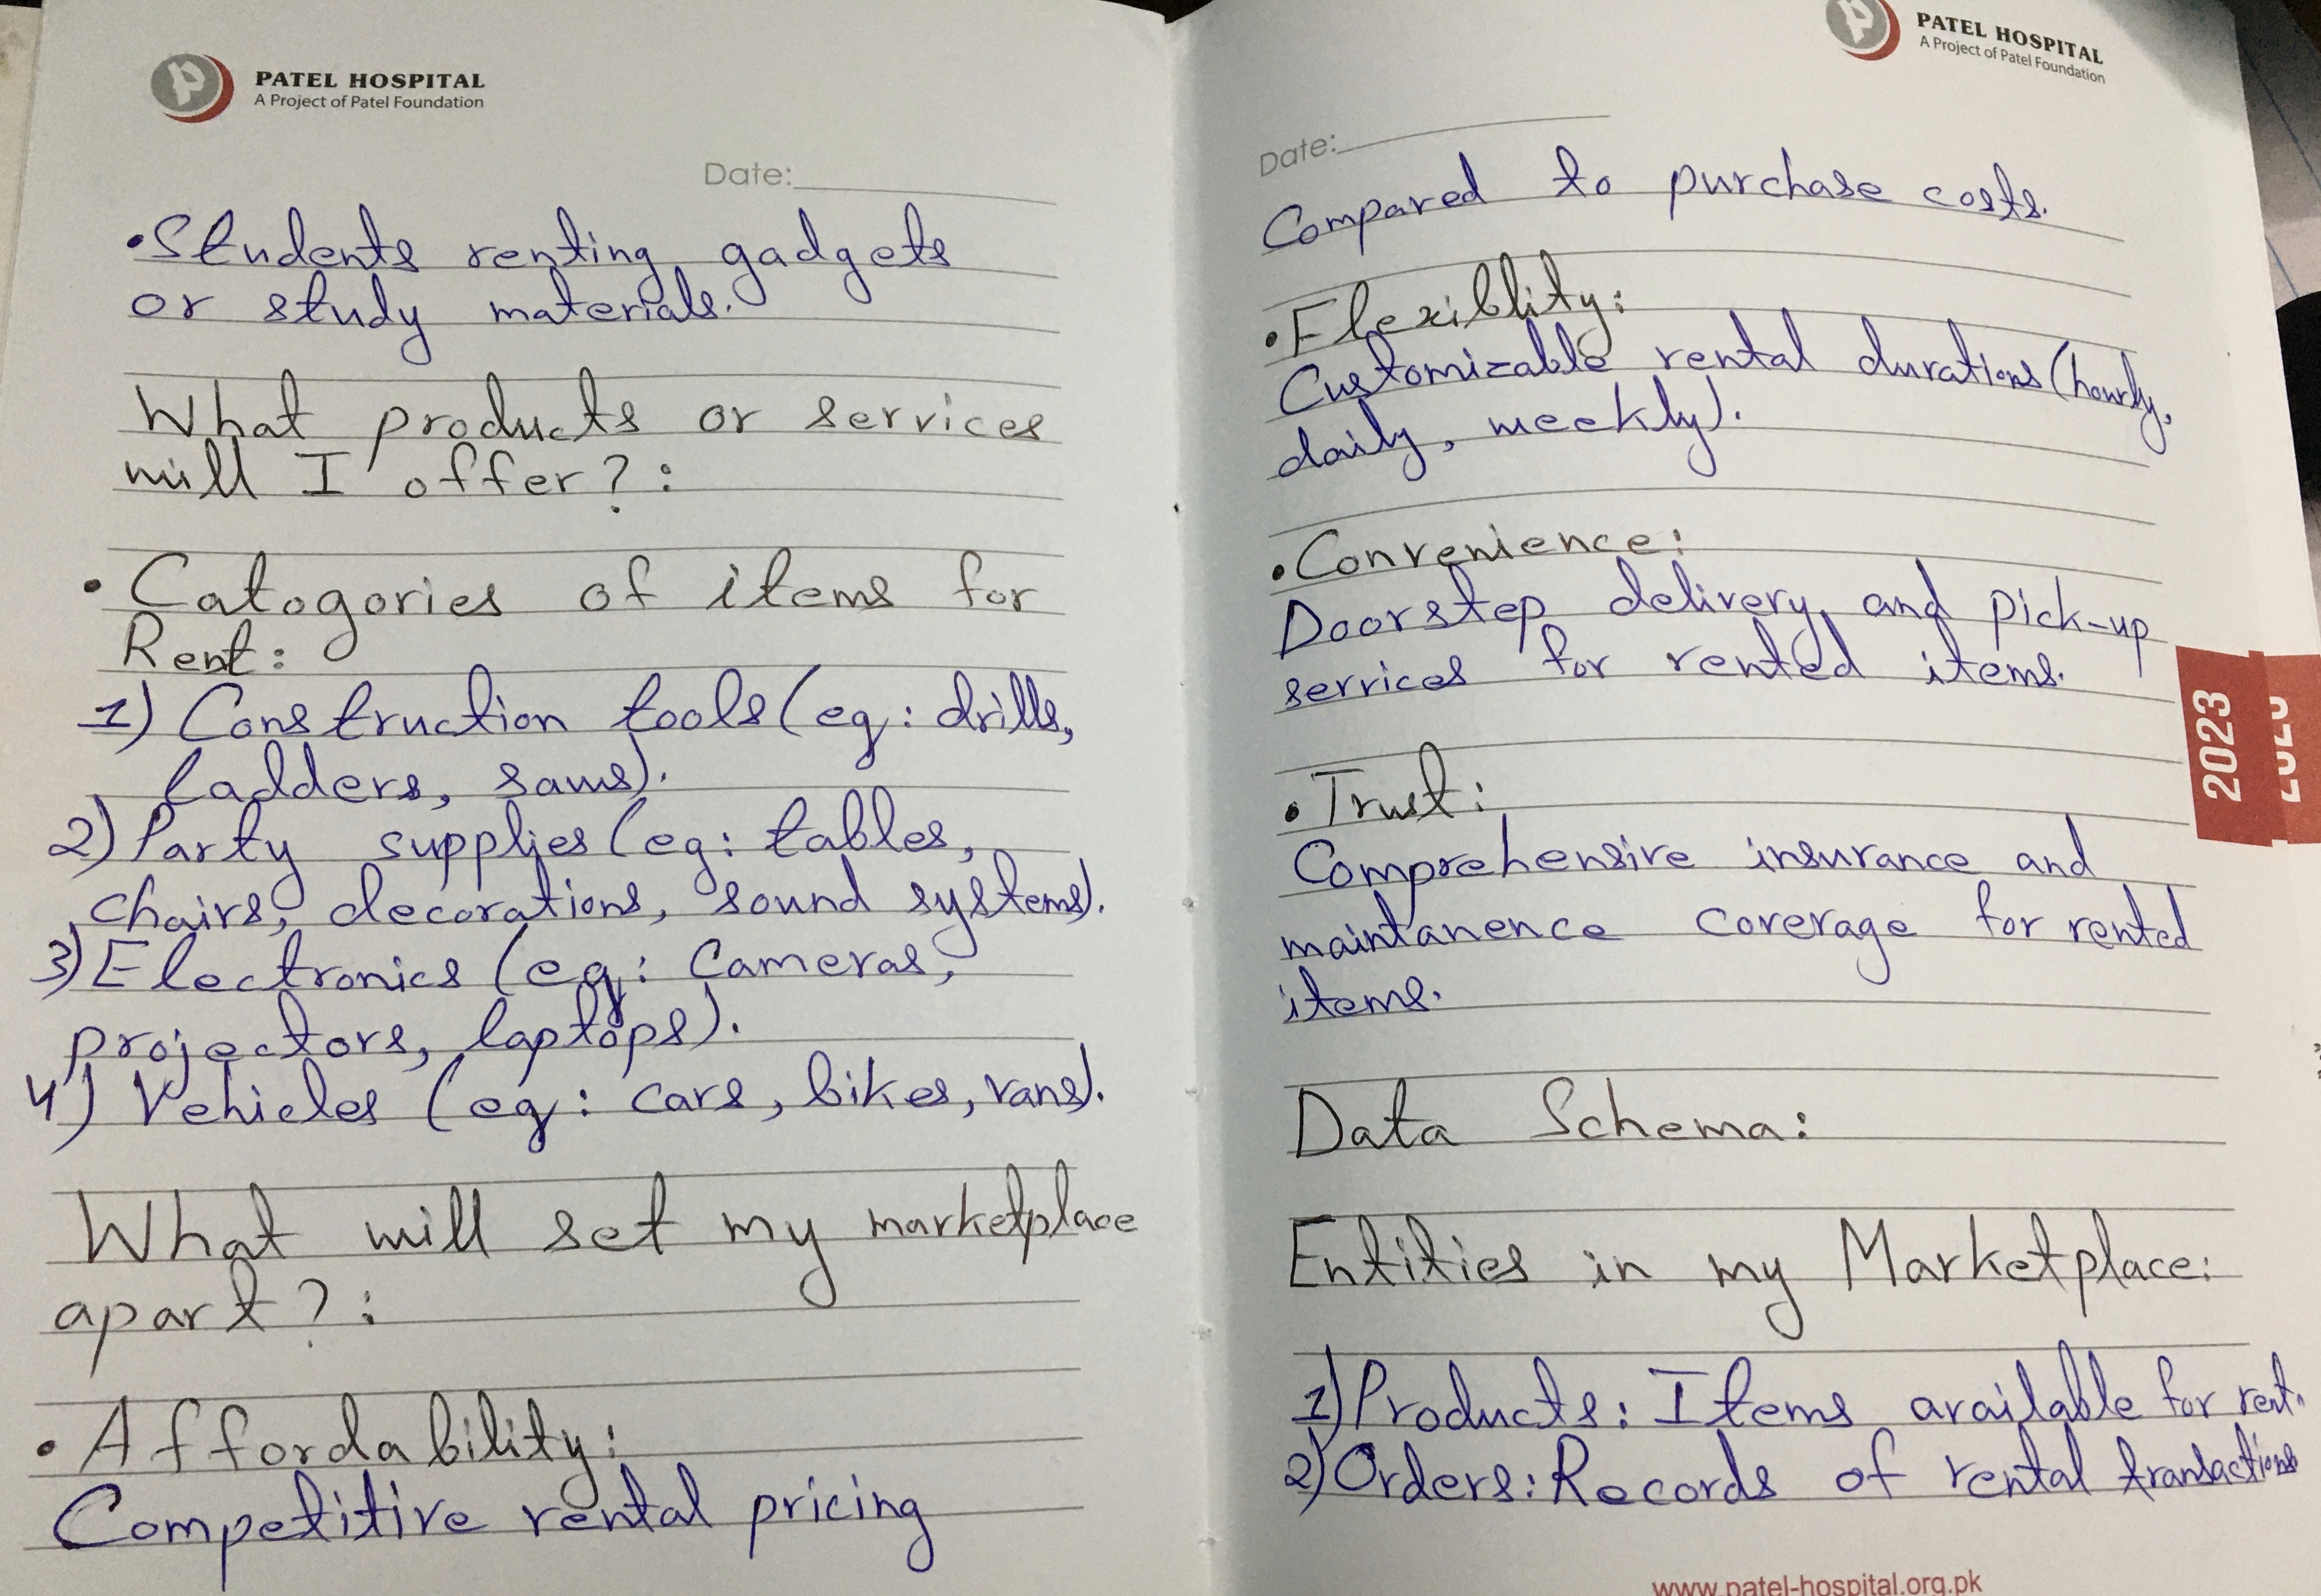 PATEL HOSPITAL
A Project of Patel Foundation
Date:
•Students renting gadgets
or study materials.
What products or services
will I offer?:
• Catogories of items for
Rent:
1) Construction tools (eg: drills,
ladders, saws).
2) Party supplies (eg: tables,
chairs, decorations, sound systems).
3) Electronics (eg: Cameras,
projectors, laptops).
4) Vehicles (eg: cars, bikes, vans).
What will set my marketplace
apart?:
• Affordability:
Competitive rental pricing
PATEL HOSPITAL
A Project of Patel Foundation
Date:
Compared to purchase costs.
•Flexiblity:
Customizable rental durations (hourly,
daily, weekly).
•Convenience:
Doorstep delivery and pick-up
services for rented items.
•Trust:
Comprehensive insurance and
maintanence coverage for rented
items.
Data Schema:
Entities in my Marketplace:
1) Products: Items available for rent.
2) Orders: Records of rental transactions
www.patel-hospital.org.pk
2023